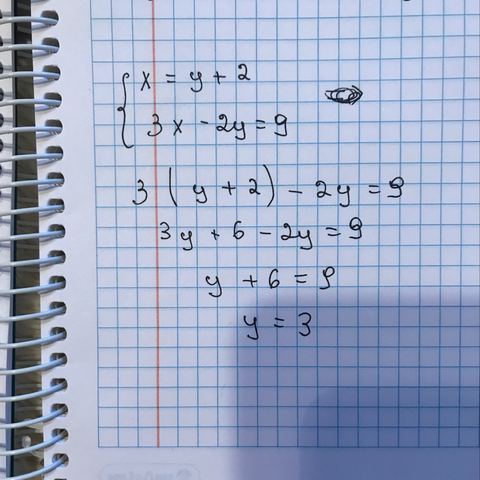 x = y + 2
3x - 2y = 9
3(y + 2) - 2y = 9
3y + 6 - 2y = 9
y + 6 = 9
y = 3